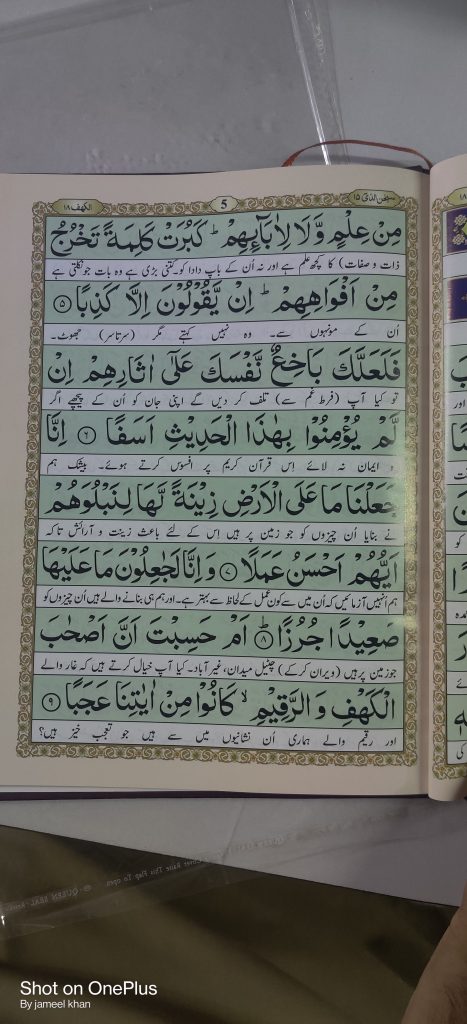 سبحٰن الذی ۱۵
5
الکھف ۱۸
مِنْ عِلْمٍ وَّلَا لِاٰبَآئِهِمْ ؕ كَبُرَتْ كَلِمَةً تَخْرُجُ
ذات و صفات) کا کچھ علم ہے اور نہ اُن کے باپ دادا کو۔ کتنی بڑی ہے وہ بات جو نکلتی ہے
مِنْ اَفْوَاهِهِمْ ؕ اِنْ يَّقُوْلُوْنَ اِلَّا كَذِبًا ۝۵
اُن کے مونہوں سے۔ وہ نہیں کہتے مگر (سرتاسر) جھوٹ۔
فَلَعَلَّكَ بَاخِعٌ نَّفْسَكَ عَلٰٓى اٰثَارِهِمْ اِنْ
تو کیا آپ (فرط غم سے) تلف کر دیں گے اپنی جان کو اُن کے پیچھے اگر
لَّمْ يُؤْمِنُوْا بِهٰذَا الْحَدِيْثِ اَسَفًا ۝۶ اِنَّا
و ایمان نہ لائے اِس قرآن کریم پر افسوس کرتے ہوئے۔ بیشک ہم
جَعَلْنَا مَا عَلَى الْاَرْضِ زِيْنَةً لَّهَا لِنَبْلُوَهُمْ
نے بنایا اُن چیزوں کو جو زمین پر ہیں اِس کے لئے باعث زینت و آرائش تاکہ
اَيُّهُمْ اَحْسَنُ عَمَلًا ۝۷ وَاِنَّا لَجٰعِلُوْنَ مَا عَلَيْهَا
ہم اُنہیں آزمائیں کہ اُن میں سے کون عمل کے لحاظ سے بہتر ہے۔ اور ہم ہی بنانے والے ہیں اُن چیزوں کو
صَعِيْدًا جُرُزًا ۝۸ؕ اَمْ حَسِبْتَ اَنَّ اَصْحٰبَ
جو زمین پر ہیں (ویران کرکے) چٹیل میدان، غیر آباد۔ کیا آپ خیال کرتے ہیں کہ غار والے
الْكَهْفِ وَالرَّقِيْمِ ۙ كَانُوْا مِنْ اٰيٰتِنَا عَجَبًا ۝۹
اور رقیم والے ہماری اُن نشانیوں میں سے ہیں جو تعجب خیز ہیں؟
Shot on OnePlus
By jameel khan